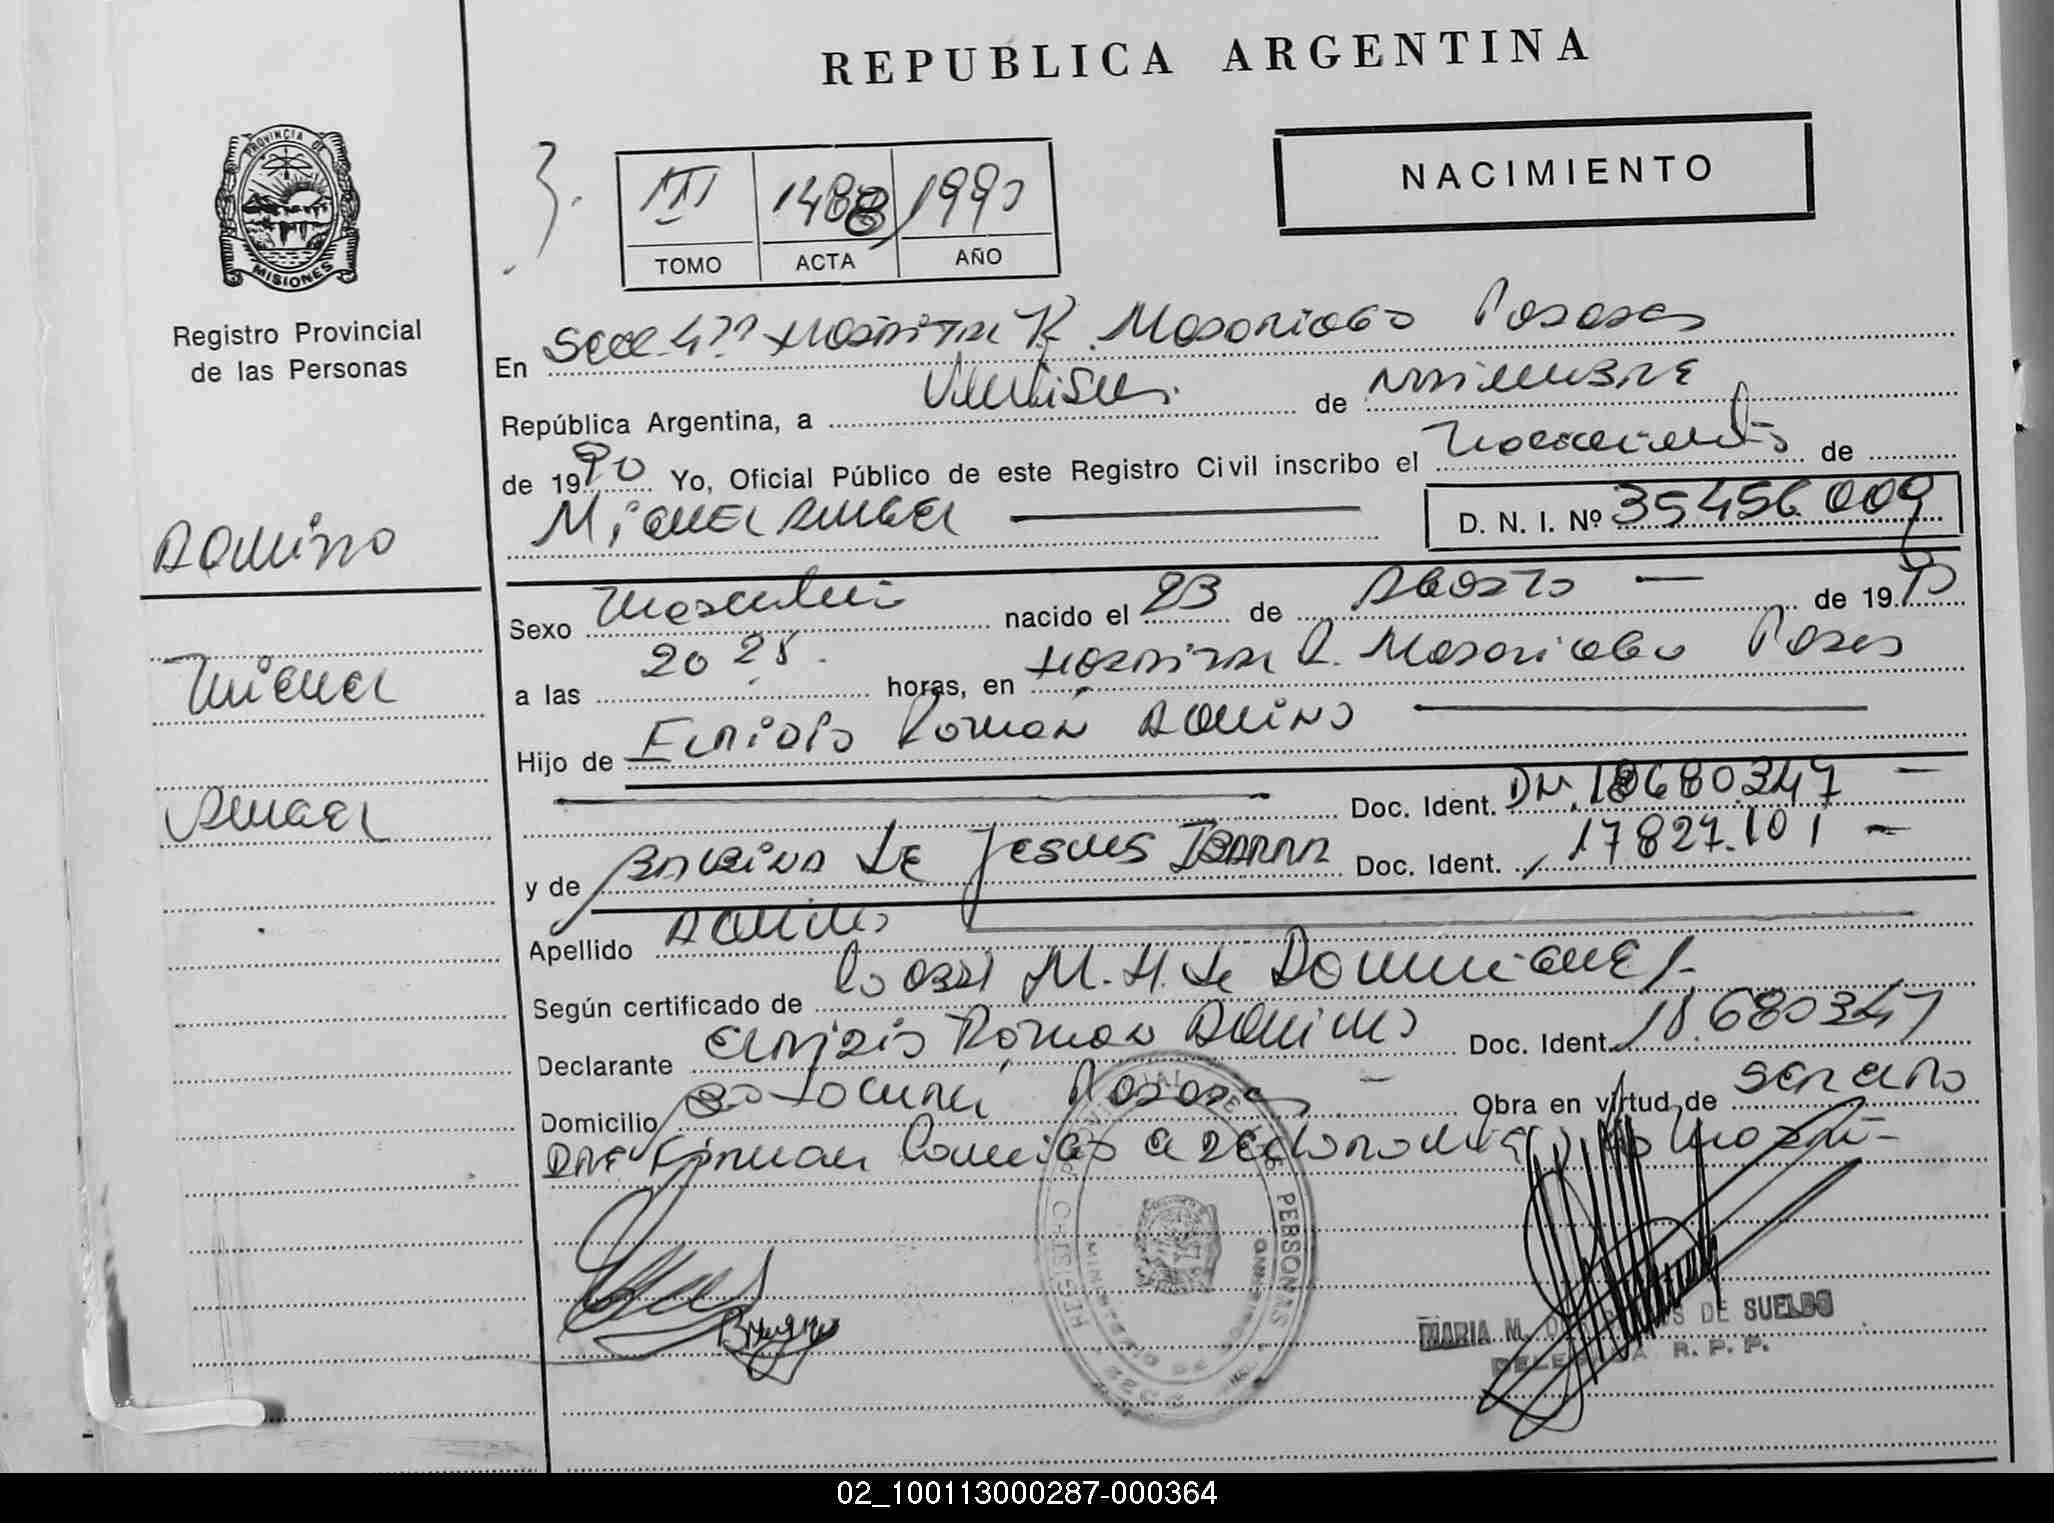 REPUBLICA ARGENTINA
PROVINCIA DE
MISIONES
Registro Provincial
de las Personas
3.
III 1488 1990
TOMO ACTA AÑO
NACIMIENTO
En Secc. 4ta Hospital R. Madariaga Posadas
República Argentina, a de noviembre
de 1990 Yo, Oficial Público de este Registro Civil inscribo el nacimiento de
Miguel Angel D. N. I. Nº 35456.009
Aquino
Sexo Masculino nacido el 23 de Agosto de 1990
a las 20 25. horas, en Hospital R. Madariaga Posadas
Miguel
Hijo de Elpidio Román Aquino
Doc. Ident. DNI. 18680.347
Angel
y de Balbina de Jesus Ibarra Doc. Ident. 17827.101
Apellido Aquino
Según certificado de M. H. de Dominguez
Declarante Elpidio Roman Aquino Doc. Ident. 18.680347
Domicilio Posadas Obra en virtud de ser el padre
Firman
REGISTRO PROVINCIAL DE LAS PERSONAS
MINISTERIO DE GOBIERNO
MARIA M. DE SUELDO
DELEGADA R. P. P.
02_100113000287-000364